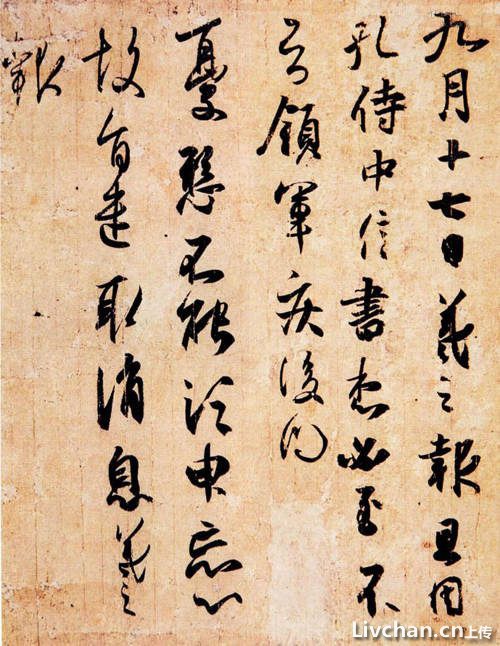 九月十七日羲之報且因
孔侍中信書想必至不
知領軍疾後問
憂懸不能須臾忘心
故旨遣取消息羲之
報
Livchan.cn上传